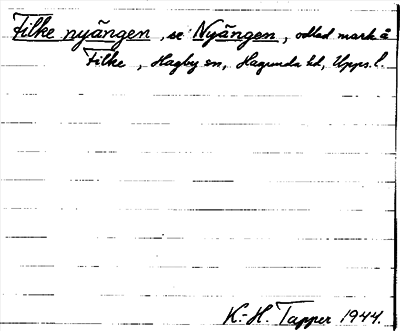 Filke nyängen, se Nyängen, odlad mark å
Filke, Hagby sn, Hagunda hd, Upps. l.
K.-H. Tapper 1944.